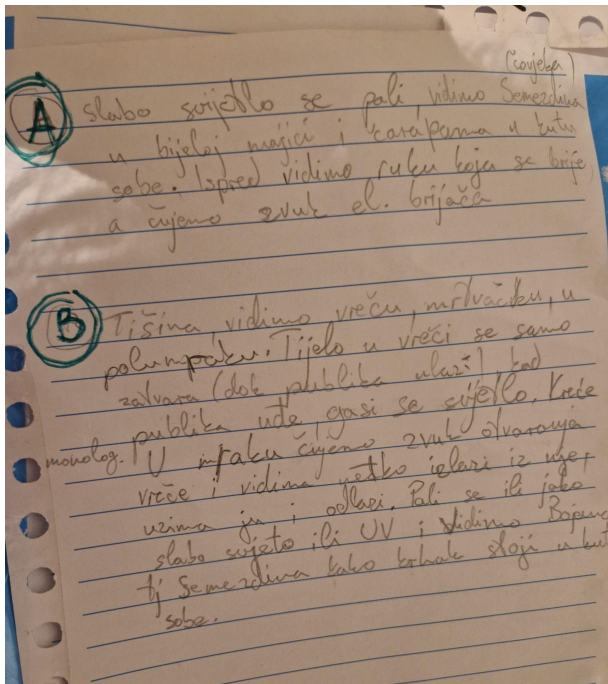 (čovjeka)
A slabo svijetlo se pali, vidimo Semezdina
u bijeloj majici i čarapama u kutu
sobe. Ispred vidimo ruku koja se brije,
a čujemo zvuk el. brijača
B Tišina, vidimo vreču, mrtvačku, u
polumraku. Tijelo u vreći se samo
zatvara (dok publika ulazi), kad
publika uđe, gasi se svijetlo. Kreće
monolog. U mraku čujemo zvuk otvaranja
vreće i vidimo netko izlazi iz nje,
uzima ju i odlazi. Pali se ili jako
slabo svjeto ili UV i vidimo
tj Semezdina kako krhak stoji u kutu
sobe.